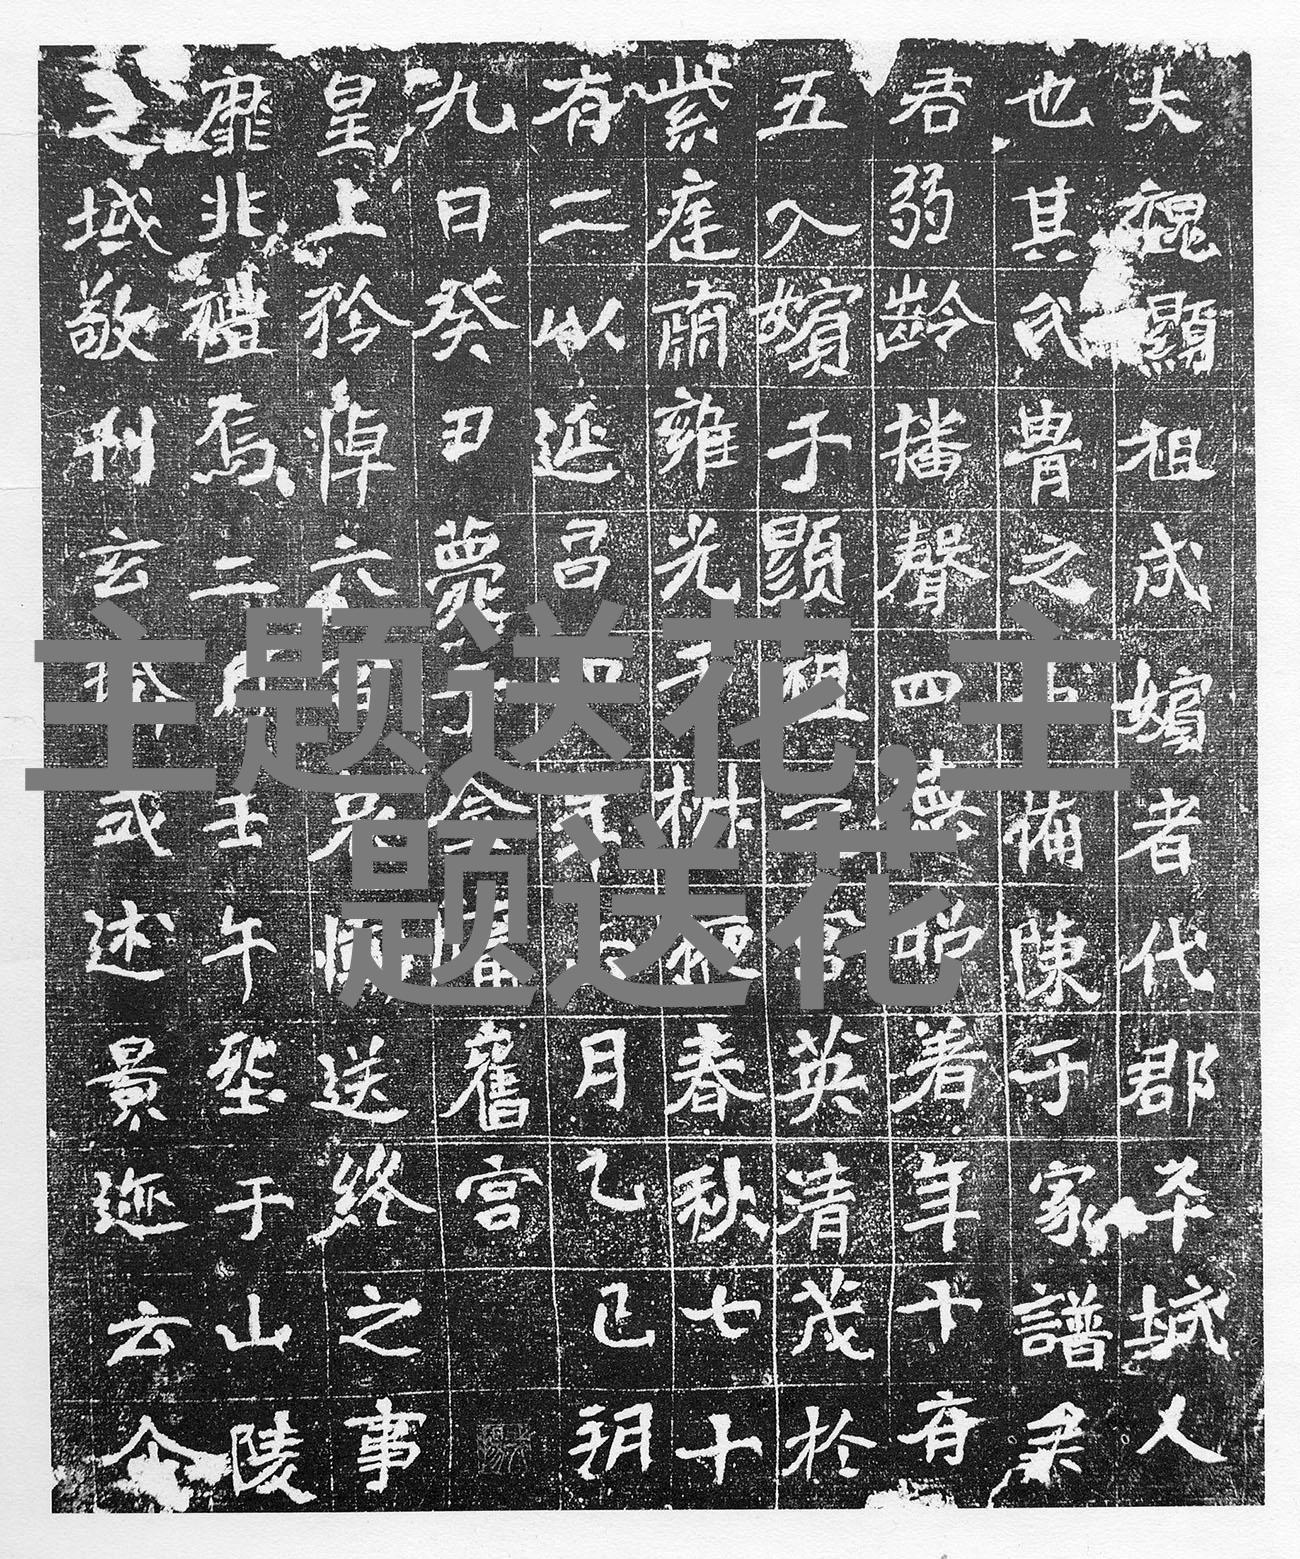 大魏顯祖成嬪者代郡平城人
也其氏冑之備陳于家譜
君弱齡播聲四德昭著年十有
五入嬪于顯祖宮英清茂於
紫庭肅雍光于樹掖春秋七十
有二以延昌四年月乙巳朔
九日癸丑薨于金墉舊宮
皇上矜悼六宮哀慟送終之事
靡非禮焉二月壬午塟于山陵
之域敬刊玄式述景迹云尒
主题送花,主
题送花